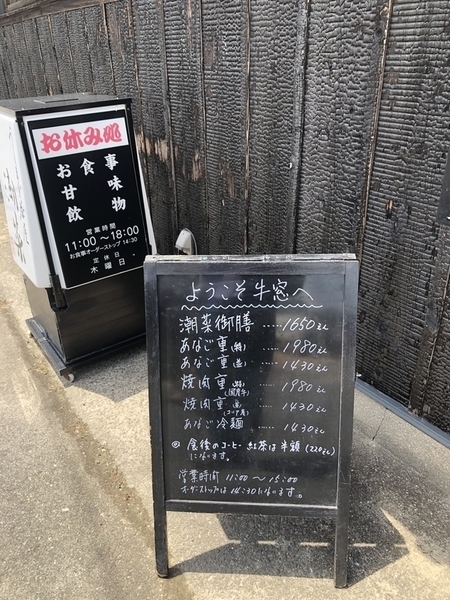 お休み処
お食事
甘味
お飲物
営業時間
11:00～18:00
お食事オーダーストップ 14:30
定休日
木曜日
ようこそ牛窓へ
潮菜御膳 ..... 1650えん
あなご重(特) ..... 1980えん
あなご重(並) ..... 1430えん
焼肉重(特)(国産牛) ..... 1980えん
焼肉重(並) ..... 1430えん
あなご冷麺 ..... 1430えん
◎ 食後のコーヒー 紅茶は半額(220えん)
になります。
営業時間 11:00～15:00
オーダーストップは14:30になります。